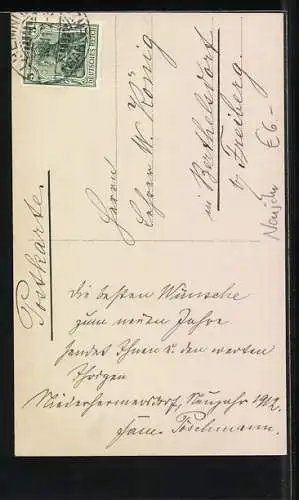 DEUTSCHES REICH
Postkarte.
Herrn
Lehrer W. König
in Berthelsdorf
b/ Freiberg.
Neujahr €6-
Die besten Wünsche
zum neuen Jahre
sendet Ihnen u. den werten
Ihrigen
Niederhermersdorf, Neujahr 1912.
Fam. Töschmann.